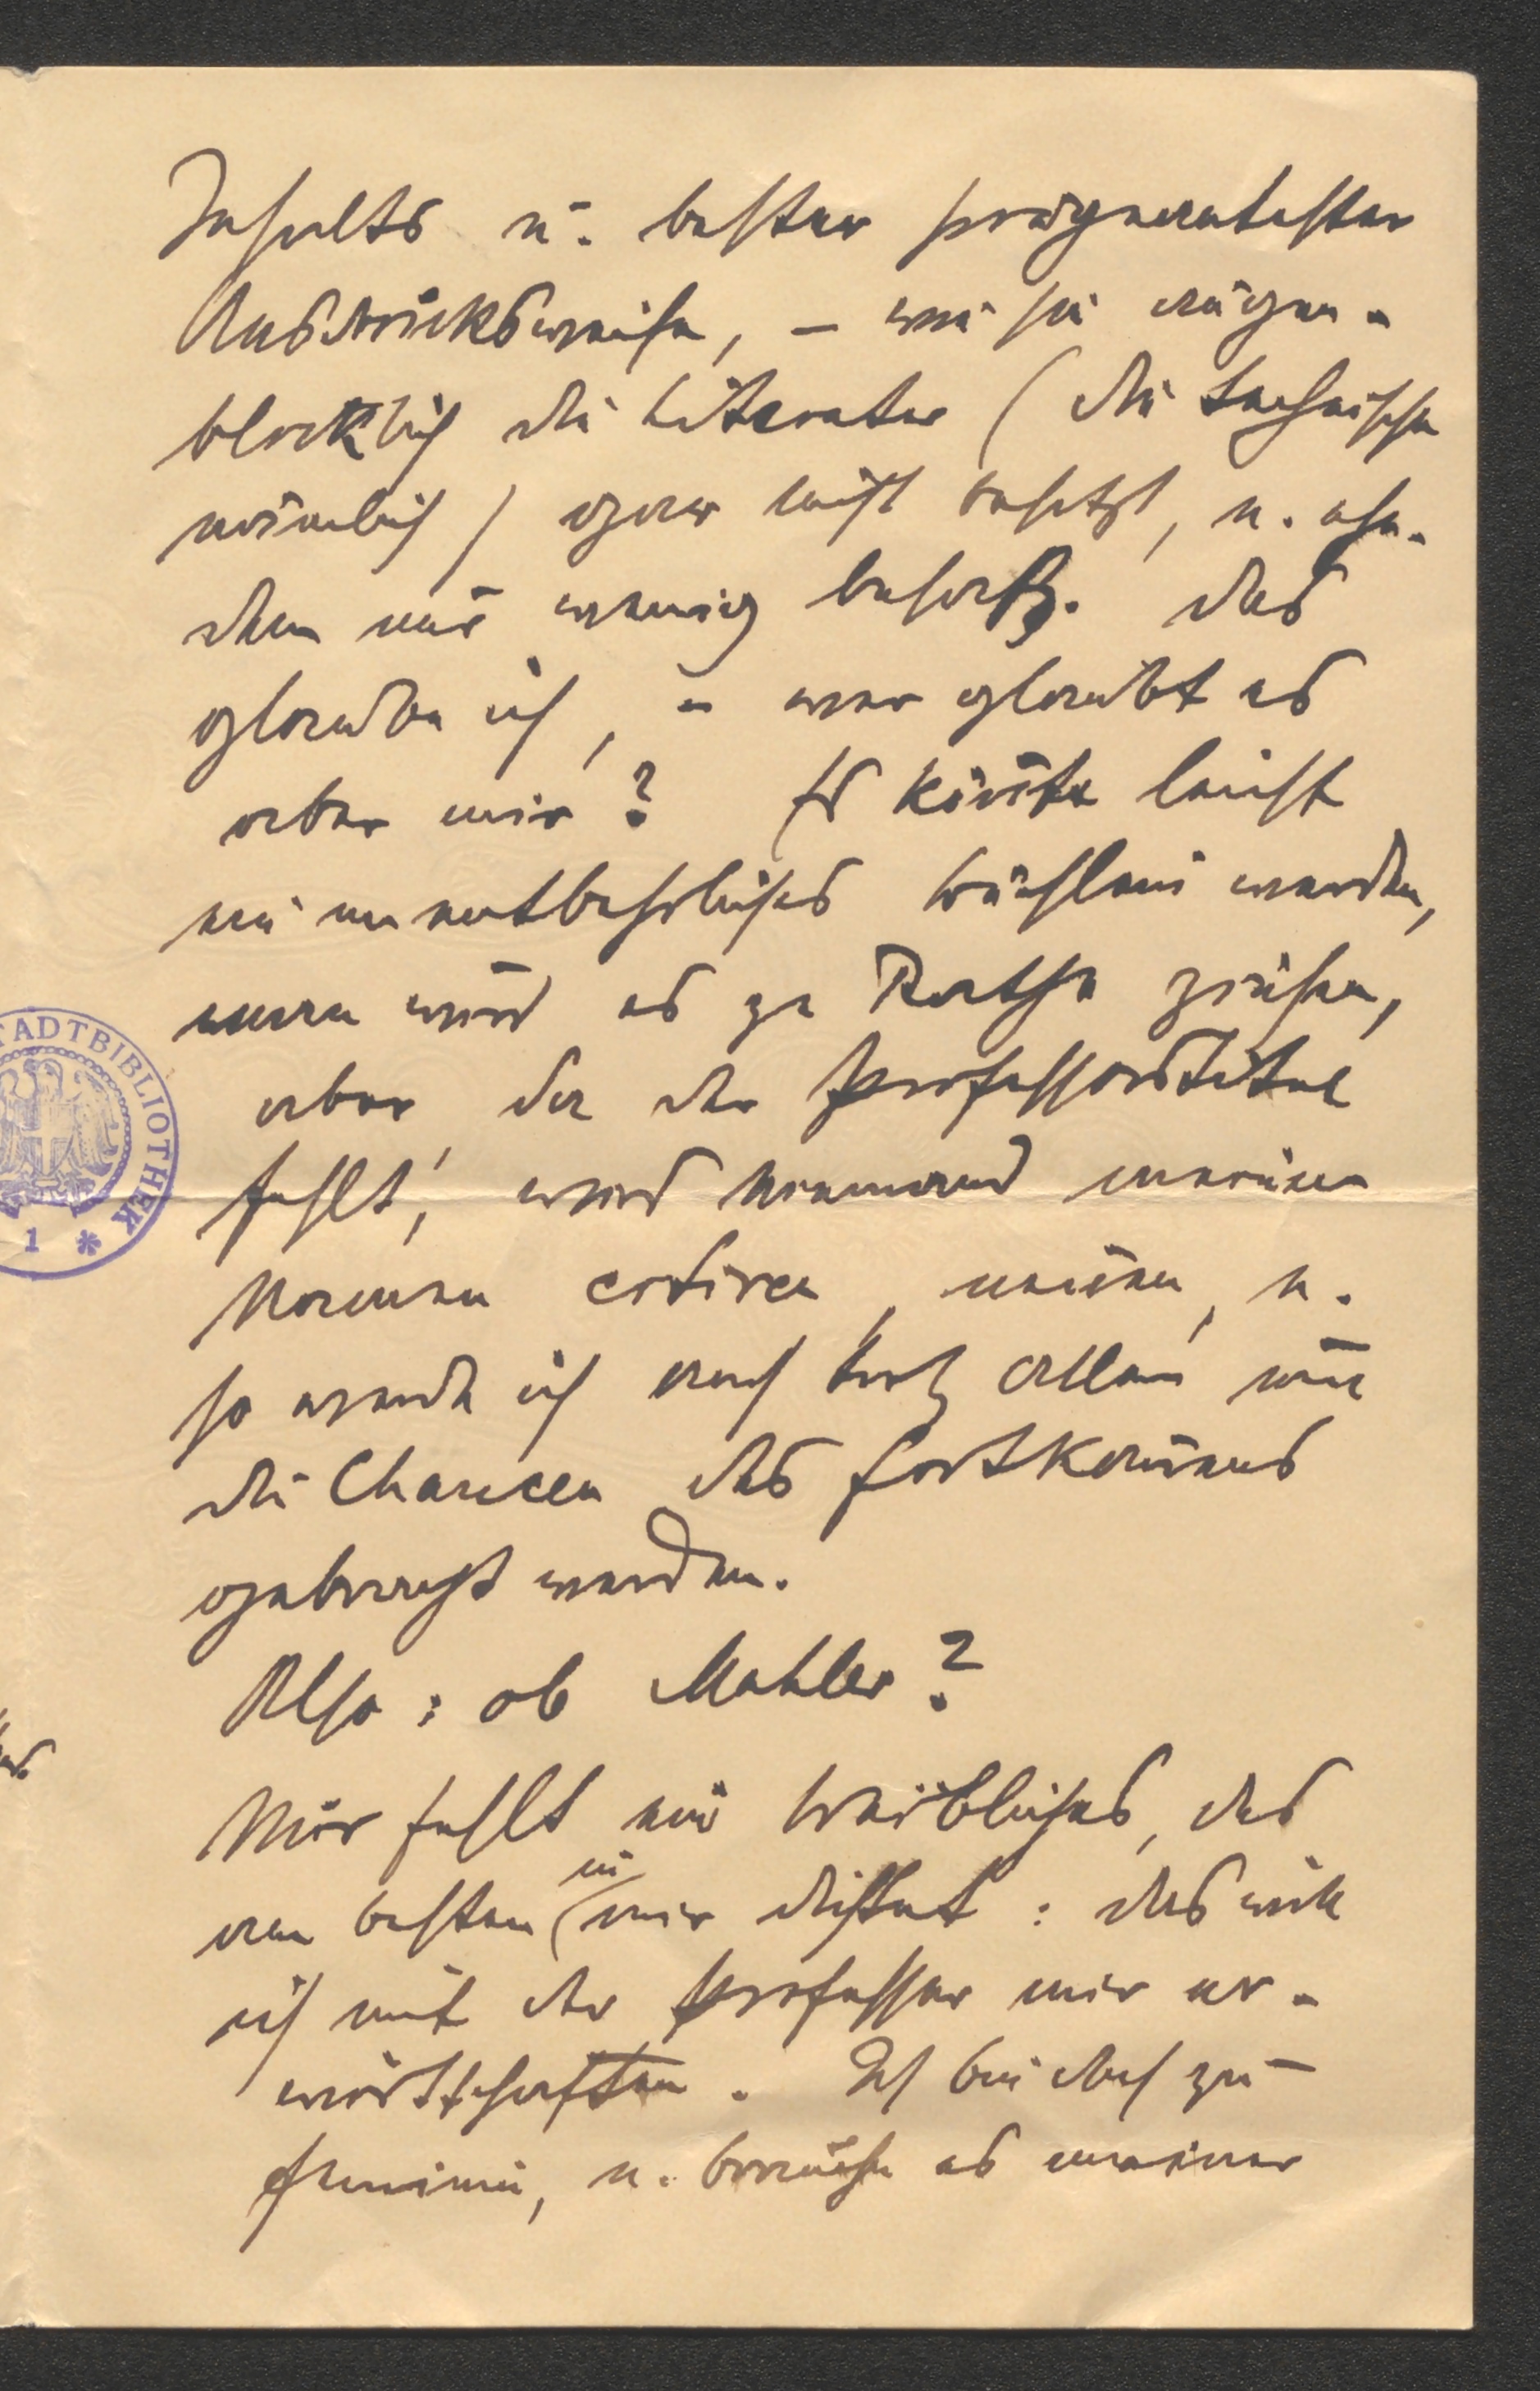 Inhalts u. bester prägnantester
Ausdrucksweise, – wie sie augen-
blicklich die Literatur (die technische
nämlich) gar nicht besitzt, u. ehe-
dem nur wenig besaß. Das
glaube ich, – wer glaubt es
aber mir? Es könnte leicht
ein unentbehrliches Büchlein werden,
man wird es zu Rathe ziehen,
aber, da der Professorstitel
fehlt, wird niemand meinen
Namen citiren, nennen, u.
so werde ich auch trotz allem um
die Chancen des Fortkommens
gebracht werden.
Also: ob Mahler?
Mir fehlt ein Weibliches, das
am besten in mir dichtet: das will
ich mit der Professur mir er-
wirtschaften. Ich bin doch zu
Femininin, u. brauche es meiner
STADTBIBLIOTHEK
1 *